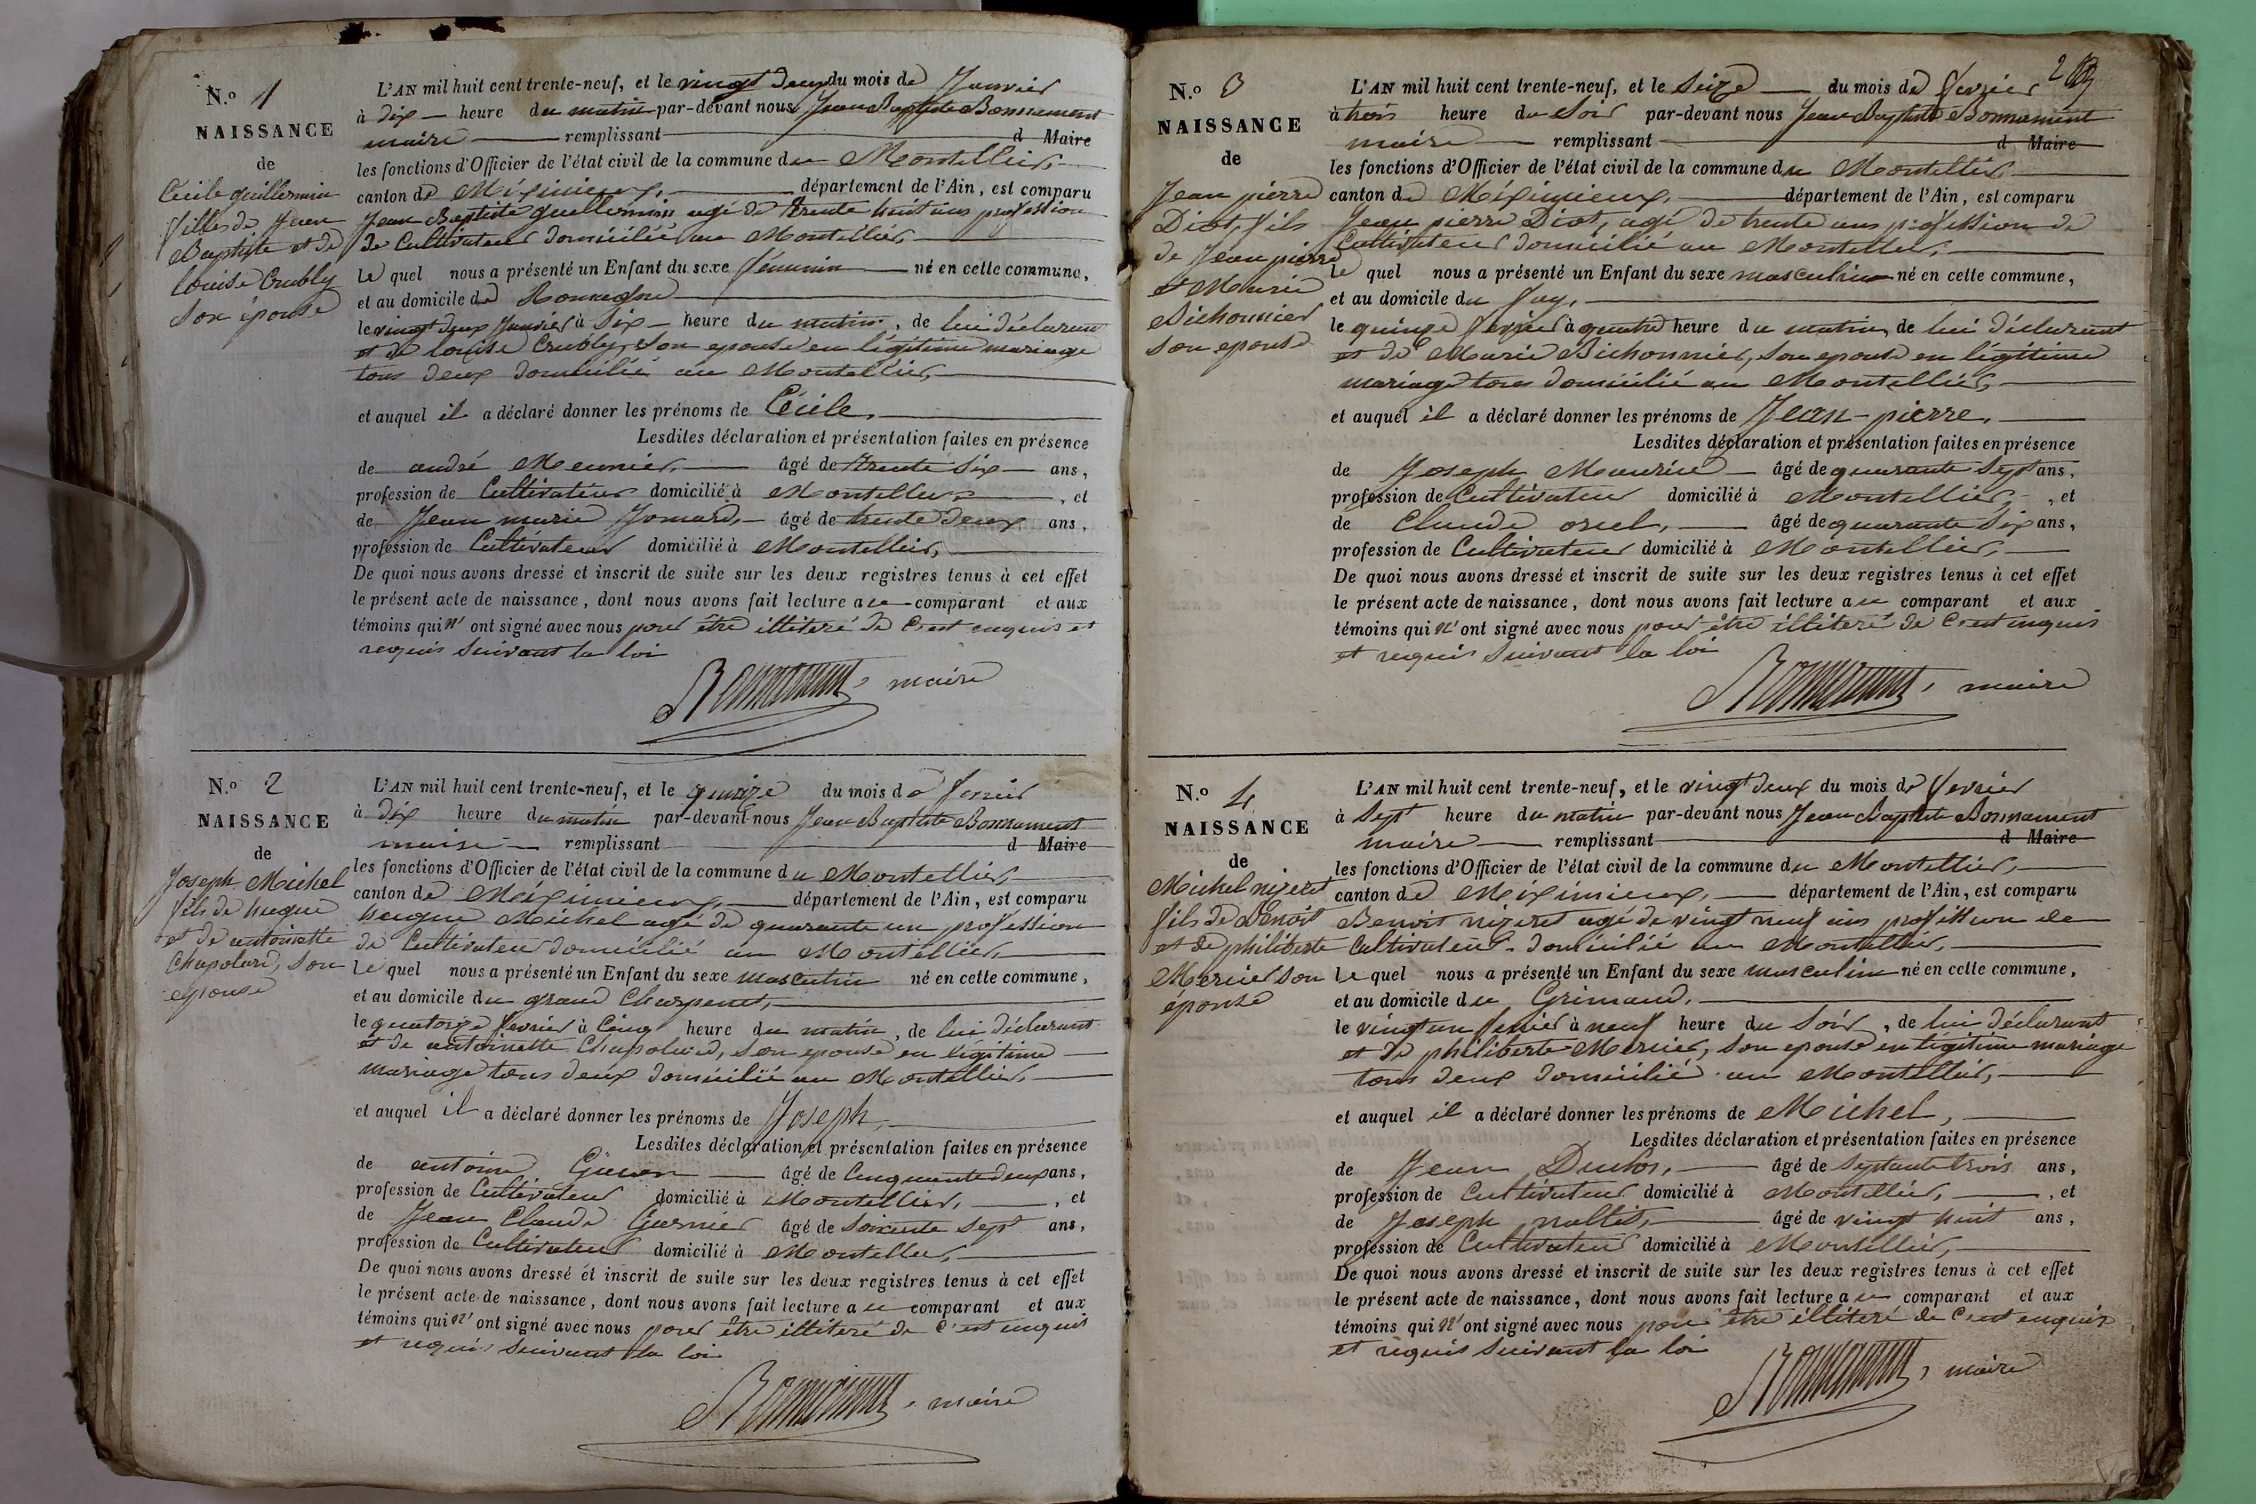 N.o 1
NAISSANCE
de
Cécile guillermin
fille de Jean
Baptiste et de
louise Crubly
son épouse
L'AN mil huit cent trente-neuf, et le vingt deux du mois de Janvier
à dix heure du matin par-devant nous Jean Baptiste Bonnament
maire remplissant d Maire
les fonctions d'Officier de l'état civil de la commune du Montellier,
canton de Méximieux, département de l'Ain, est comparu
Jean Baptiste guillermin agé de trente huit ans profession
de Cultivateur domicilié au Montellier,
le quel nous a présenté un Enfant du sexe féminin né en cette commune,
et au domicile de
le vingt deux Janvier à Six heure du matin, de lui déclarant
et de louise Crubly, son epouse en légitime mariage
tous deux domicilié au Montellier,
et auquel il a déclaré donner les prénoms de Cécile,
Lesdites déclaration et présentation faites en présence
de andré Meunier, âgé de trente six ans,
profession de Cultivateur domicilié à Montellier, et
de Jean marie Jomard, âgé de trente deux ans,
profession de Cultivateur domicilié à Montellier,
De quoi nous avons dressé et inscrit de suite sur les deux registres tenus à cet effet
le présent acte de naissance, dont nous avons fait lecture au comparant et aux
témoins qui n' ont signé avec nous pour être illiteré de c'est enquis et
requis suivant la loi
Bonnament, maire
N.o 2
NAISSANCE
de
Joseph Michel
fils de hugue
et de antoinette
Chapoland, son
epouse
L'AN mil huit cent trente-neuf, et le quinze du mois de fevrier
à dix heure du matin par-devant nous Jean Baptiste Bonnament
maire remplissant d Maire
les fonctions d'Officier de l'état civil de la commune du Montellier,
canton de Méximieux, département de l'Ain, est comparu
hugue Michel agé de quarante un profession
de Cultivateur domicilié au Montellier,
le quel nous a présenté un Enfant du sexe masculin né en cette commune,
et au domicile du grand Charpenet,
le quatorze fevrier à Cinq heure du matin, de lui déclarant
et de antoinette Chapoland, son epouse en légitime
mariage tous deux domicilié au Montellier,
et auquel il a déclaré donner les prénoms de Joseph,
Lesdites déclaration et présentation faites en présence
de antoine âgé de Cinquante deux ans,
profession de Cultivateur domicilié à Montellier, et
de Jean Claude Garnier âgé de soixente sept ans,
profession de Cultivateur domicilié à Montellier,
De quoi nous avons dressé et inscrit de suite sur les deux registres tenus à cet effet
le présent acte de naissance, dont nous avons fait lecture au comparant et aux
témoins qui n' ont signé avec nous pour être illiteré de c'est enquis
et requis suivant la loi
Bonnament, maire
2
N.o 3
NAISSANCE
de
Jean pierre
Diot, fils
de Jean pierre
et Marie
Bichonnier
son epouse
L'AN mil huit cent trente-neuf, et le Seize du mois de fevrier
à trois heure du Soir par-devant nous Jean Baptiste Bonnament
maire remplissant d Maire
les fonctions d'Officier de l'état civil de la commune du Montellier,
canton de Méximieux, département de l'Ain, est comparu
Jean pierre Diot, agé de trente ans profession de
Cultivateur domicilié au Montellier,
le quel nous a présenté un Enfant du sexe masculin né en cette commune,
et au domicile du
le quinze fevrier à quatre heure du matin, de lui déclarant
et de Marie Bichonnier, son epouse en légitime
mariage tous domicilié au Montellier,
et auquel il a déclaré donner les prénoms de Jean-pierre,
Lesdites déclaration et présentation faites en présence
de Joseph Maurice âgé de quarante sept ans,
profession de Cultivateur domicilié à Montellier, et
de Claude âgé de quarante six ans,
profession de Cultivateur domicilié à Montellier,
De quoi nous avons dressé et inscrit de suite sur les deux registres tenus à cet effet
le présent acte de naissance, dont nous avons fait lecture au comparant et aux
témoins qui n' ont signé avec nous pour être illiteré de c'est enquis
et requis suivant la loi
Bonnament, maire
N.o 4
NAISSANCE
de
Michel nizeret
fils de Benoit
et de philiberte
Mercier son
épouse
L'AN mil huit cent trente-neuf, et le vingt deux du mois de fevrier
à sept heure du matin par-devant nous Jean Baptiste Bonnament
maire remplissant d Maire
les fonctions d'Officier de l'état civil de la commune du Montellier,
canton de Méximieux, département de l'Ain, est comparu
Benoit nizeret agé de vingt neuf ans profession de
Cultivateur domicilié au Montellier,
le quel nous a présenté un Enfant du sexe masculin né en cette commune,
et au domicile du Grimaud,
le vingt un fevrier à neuf heure du Soir, de lui déclarant
et de philiberte Mercier, son epouse en légitime mariage
tous deux domicilié au Montellier,
et auquel il a déclaré donner les prénoms de Michel,
Lesdites déclaration et présentation faites en présence
de Jean Duclos, âgé de septante trois ans,
profession de Cultivateur domicilié à Montellier, et
de Joseph âgé de vingt huit ans,
profession de Cultivateur domicilié à Montellier,
De quoi nous avons dressé et inscrit de suite sur les deux registres tenus à cet effet
le présent acte de naissance, dont nous avons fait lecture au comparant et aux
témoins qui n' ont signé avec nous pour être illiteré de c'est enquis
et requis suivant la loi
Bonnament, maire